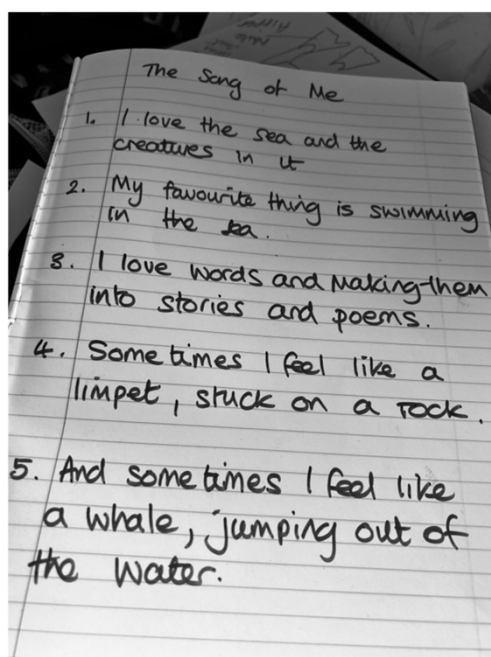 The Song of Me
1. I love the sea and the
creatures in it
2. My favourite thing is swimming
in the sea.
3. I love words and making them
into stories and poems.
4. Sometimes I feel like a
limpet, stuck on a rock.
5. And sometimes I feel like
a whale, jumping out of
the water.